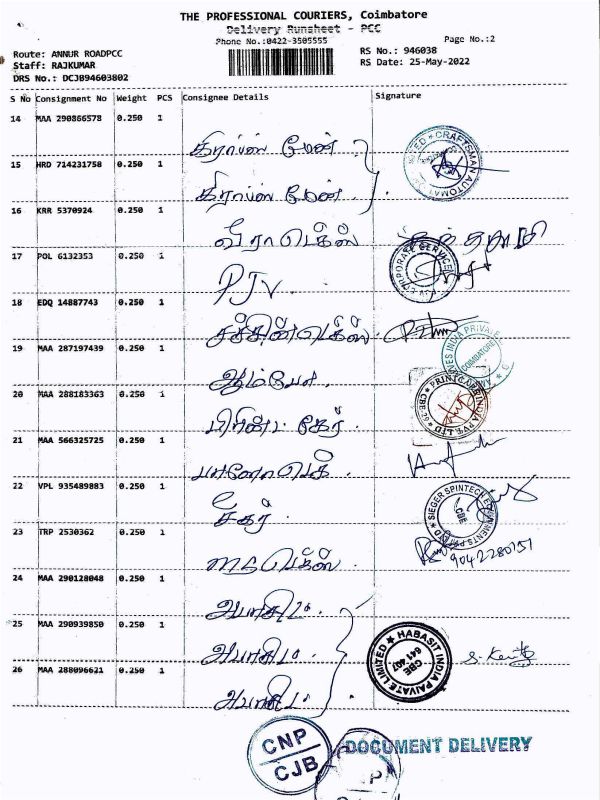 THE PROFESSIONAL COURIERS, Coimbatore
Delivery Runsheet - PCC
Phone No.:0422-3505555
Page No.:2
Route: ANNUR ROADPCC
RS No.: 946038
Staff: RAJKUMAR
RS Date: 25-May-2022
DRS No.: DCJB94603802
S No Consignment No Weight PCS Consignee Details Signature
14 MAA 290866578 0.250 1
கிராப்ஸ் மேன்
CRAFTSMAN AUTOMA
15 HRD 714231758 0.250 1
கிராப்ஸ் மேன்
16 KRR 5370924 0.250 1
வீரா டெக்ஸ்
17 POL 6132353 0.250 1
CORPORATE SERVICE
18 EDQ 14887743 0.250 1
19 MAA 287197439 0.250 1
INDIA PRIVATE
COIMBATORE
20 MAA 288183363 0.250 1
பிரிண்ட் கேர்
PRINTCARE INDIA PVT. LTD
21 MAA 566325725 0.250 1
22 VPL 935489883 0.250 1
சீகர்
SIEGER SPINTECH EQUIPMENTS PVT LTD
CBE
23 TRP 2530362 0.250 1
9042280151
24 MAA 290128048 0.250 1
25 MAA 290939850 0.250 1
HABASIT INDIA PAIVATE LIMITED
CBE
641 407
26 MAA 288096621 0.250 1
CNP
CJB
DOCUMENT DELIVERY